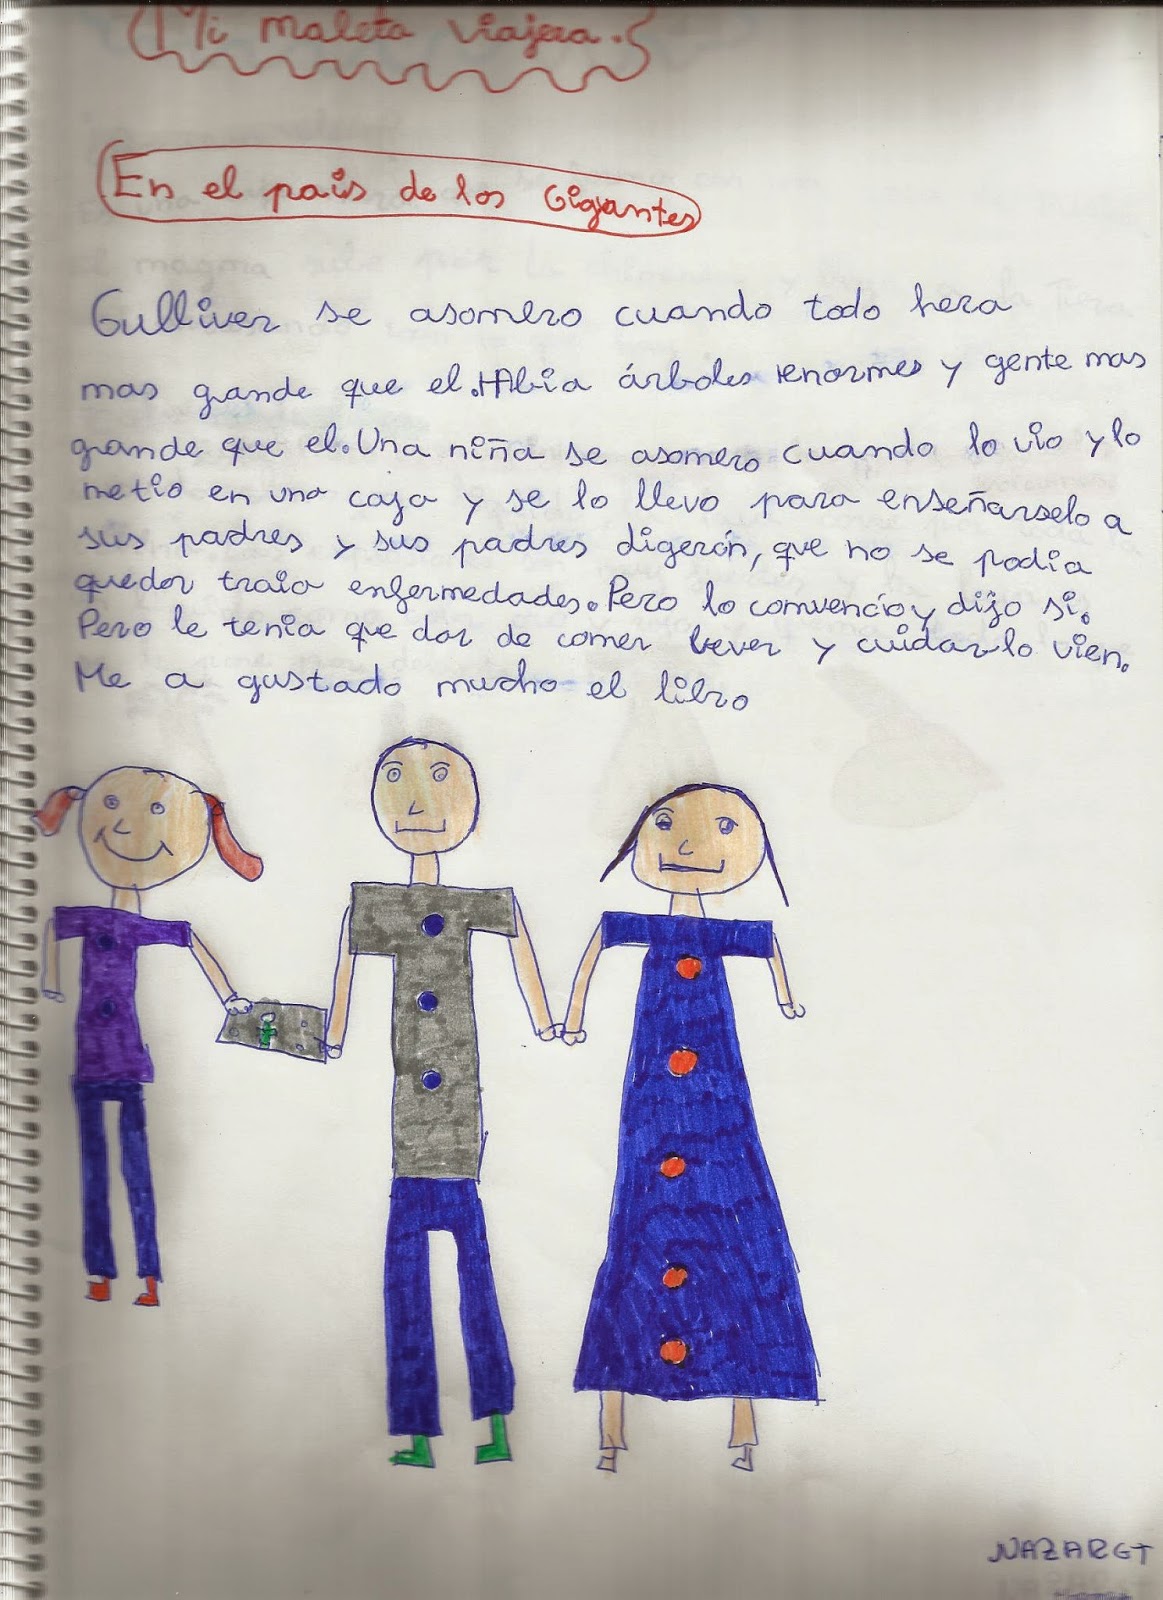 Mi maleta viajera.
En el pais de los Gigantes
Gulliver se asomero cuando todo hera
mas grande que el. HAbia árboles enormes y gente mas
grande que el. Una niña se asomero cuando lo vio y lo
metio en una caja y se lo llevo para enseñarselo a
sus padres y sus padres digerón, que no se podia
quedar traia enfermedades. Pero lo comvencio y dijo si.
Pero le tenia que dar de comer bever y cuidar lo vien.
Me a gustado mucho el libro
NAZARET